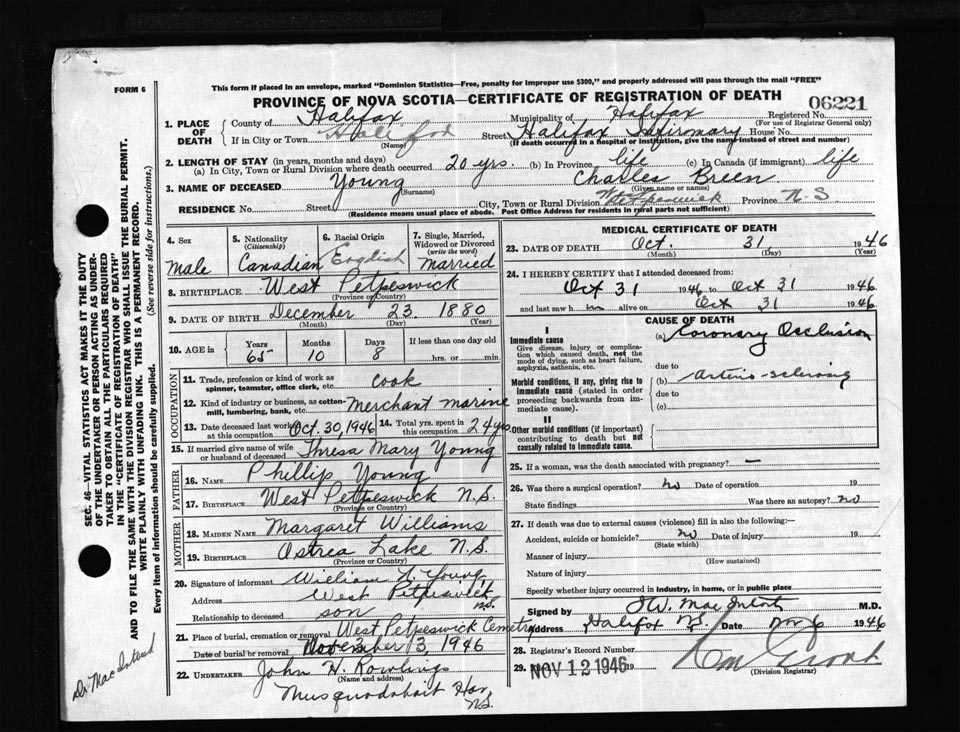 FORM 6
This form if placed in an envelope, marked "Dominion Statistics—Free, penalty for improper use $300," and properly addressed will pass through the mail "FREE"
PROVINCE OF NOVA SCOTIA—CERTIFICATE OF REGISTRATION OF DEATH
06221
1. PLACE OF DEATH
County of Halifax
Municipality of Halifax
Registered No.
(For use of Registrar General only)
If in City or Town Halifax (Name)
Street Halifax Infirmary House No.
(If death occurred in a hospital or institution, give the name instead of street and number)
2. LENGTH OF STAY (in years, months and days)
(a) In City, Town or Rural Division where death occurred 20 yrs. (b) In Province life (c) In Canada (if immigrant) life
3. NAME OF DECEASED Young (Surname) Charles Breen (Given name or names)
RESIDENCE No. Street City, Town or Rural Division Province N-S
(Residence means usual place of abode. Post Office Address for residents in rural parts not sufficient)
4. Sex male
5. Nationality (Citizenship) Canadian
6. Racial Origin English
7. Single, Married, Widowed or Divorced (write the word) married
8. BIRTHPLACE West Petpeswick
(Province or Country)
9. DATE OF BIRTH December 23 1880
(Month) (Day) (Year)
10. AGE in Years 65 Months 10 Days 8 If less than one day old hrs. or min.
OCCUPATION
11. Trade, profession or kind of work as spinner, teamster, office clerk, etc. cook
12. Kind of industry or business, as cotton-mill, lumbering, bank, etc. Merchant marine
13. Date deceased last worked at this occupation Oct. 30, 1946 14. Total yrs. spent in this occupation 24 yrs.
15. If married give name of wife or husband of deceased Thresa Mary Young
FATHER
16. NAME Phillip Young
17. BIRTHPLACE West Petpeswick N.S.
(Province or Country)
MOTHER
18. MAIDEN NAME Margaret Williams
19. BIRTHPLACE Ostrea Lake N.S.
(Province or Country)
20. Signature of informant William L. Young
Address West Petpeswick N.S.
Relationship to deceased son
21. Place of burial, cremation or removal West Petpeswick Cemetry
Date of burial or removal November 3, 1946
22. UNDERTAKER John H. Rowlings
(Name and address)
Musquodoboit Har. N.S.
MEDICAL CERTIFICATE OF DEATH
23. DATE OF DEATH Oct. 31 1946
(Month) (Day) (Year)
24. I HEREBY CERTIFY that I attended deceased from:
Oct 31 1946 to Oct 31 1946
and last saw h m alive on Oct 31 1946
CAUSE OF DEATH
I
Immediate cause
Give disease, injury or complication which caused death, not the mode of dying, such as heart failure, asphyxia, asthenia, etc.
(a) Coronary Occlusion
due to
Morbid conditions, if any, giving rise to immediate cause (stated in order proceeding backwards from immediate cause).
(b) arterio-sclerosis
due to
(c)
II
Other morbid conditions (if important) contributing to death but not causally related to immediate cause.
25. If a woman, was the death associated with pregnancy? —
26. Was there a surgical operation? no Date of operation 19
State findings Was there an autopsy? no
27. If death was due to external causes (violence) fill in also the following:—
Accident, suicide or homicide? no Date of injury 19
(State which)
Manner of injury
(How sustained)
Nature of injury
Specify whether injury occurred in industry, in home, or in public place
Signed by M.D.
Address Halifax N.S. Date Nov 6 1946
28. Registrar's Record Number
29. NOV 12 1946 19
(Division Registrar)
SEC. 46—VITAL STATISTICS ACT MAKES IT THE DUTY
OF THE UNDERTAKER OR PERSON ACTING AS UNDER-
TAKER TO OBTAIN ALL THE PARTICULARS REQUIRED
IN THE "CERTIFICATE OF REGISTRATION OF DEATH"
AND TO FILE THE SAME WITH THE DIVISION REGISTRAR WHO SHALL ISSUE THE BURIAL PERMIT.
WRITE PLAINLY WITH UNFADING INK. THIS IS A PERMANENT RECORD.
Every item of information should be carefully supplied. (See reverse side for instructions.)
Dr MacIntosh